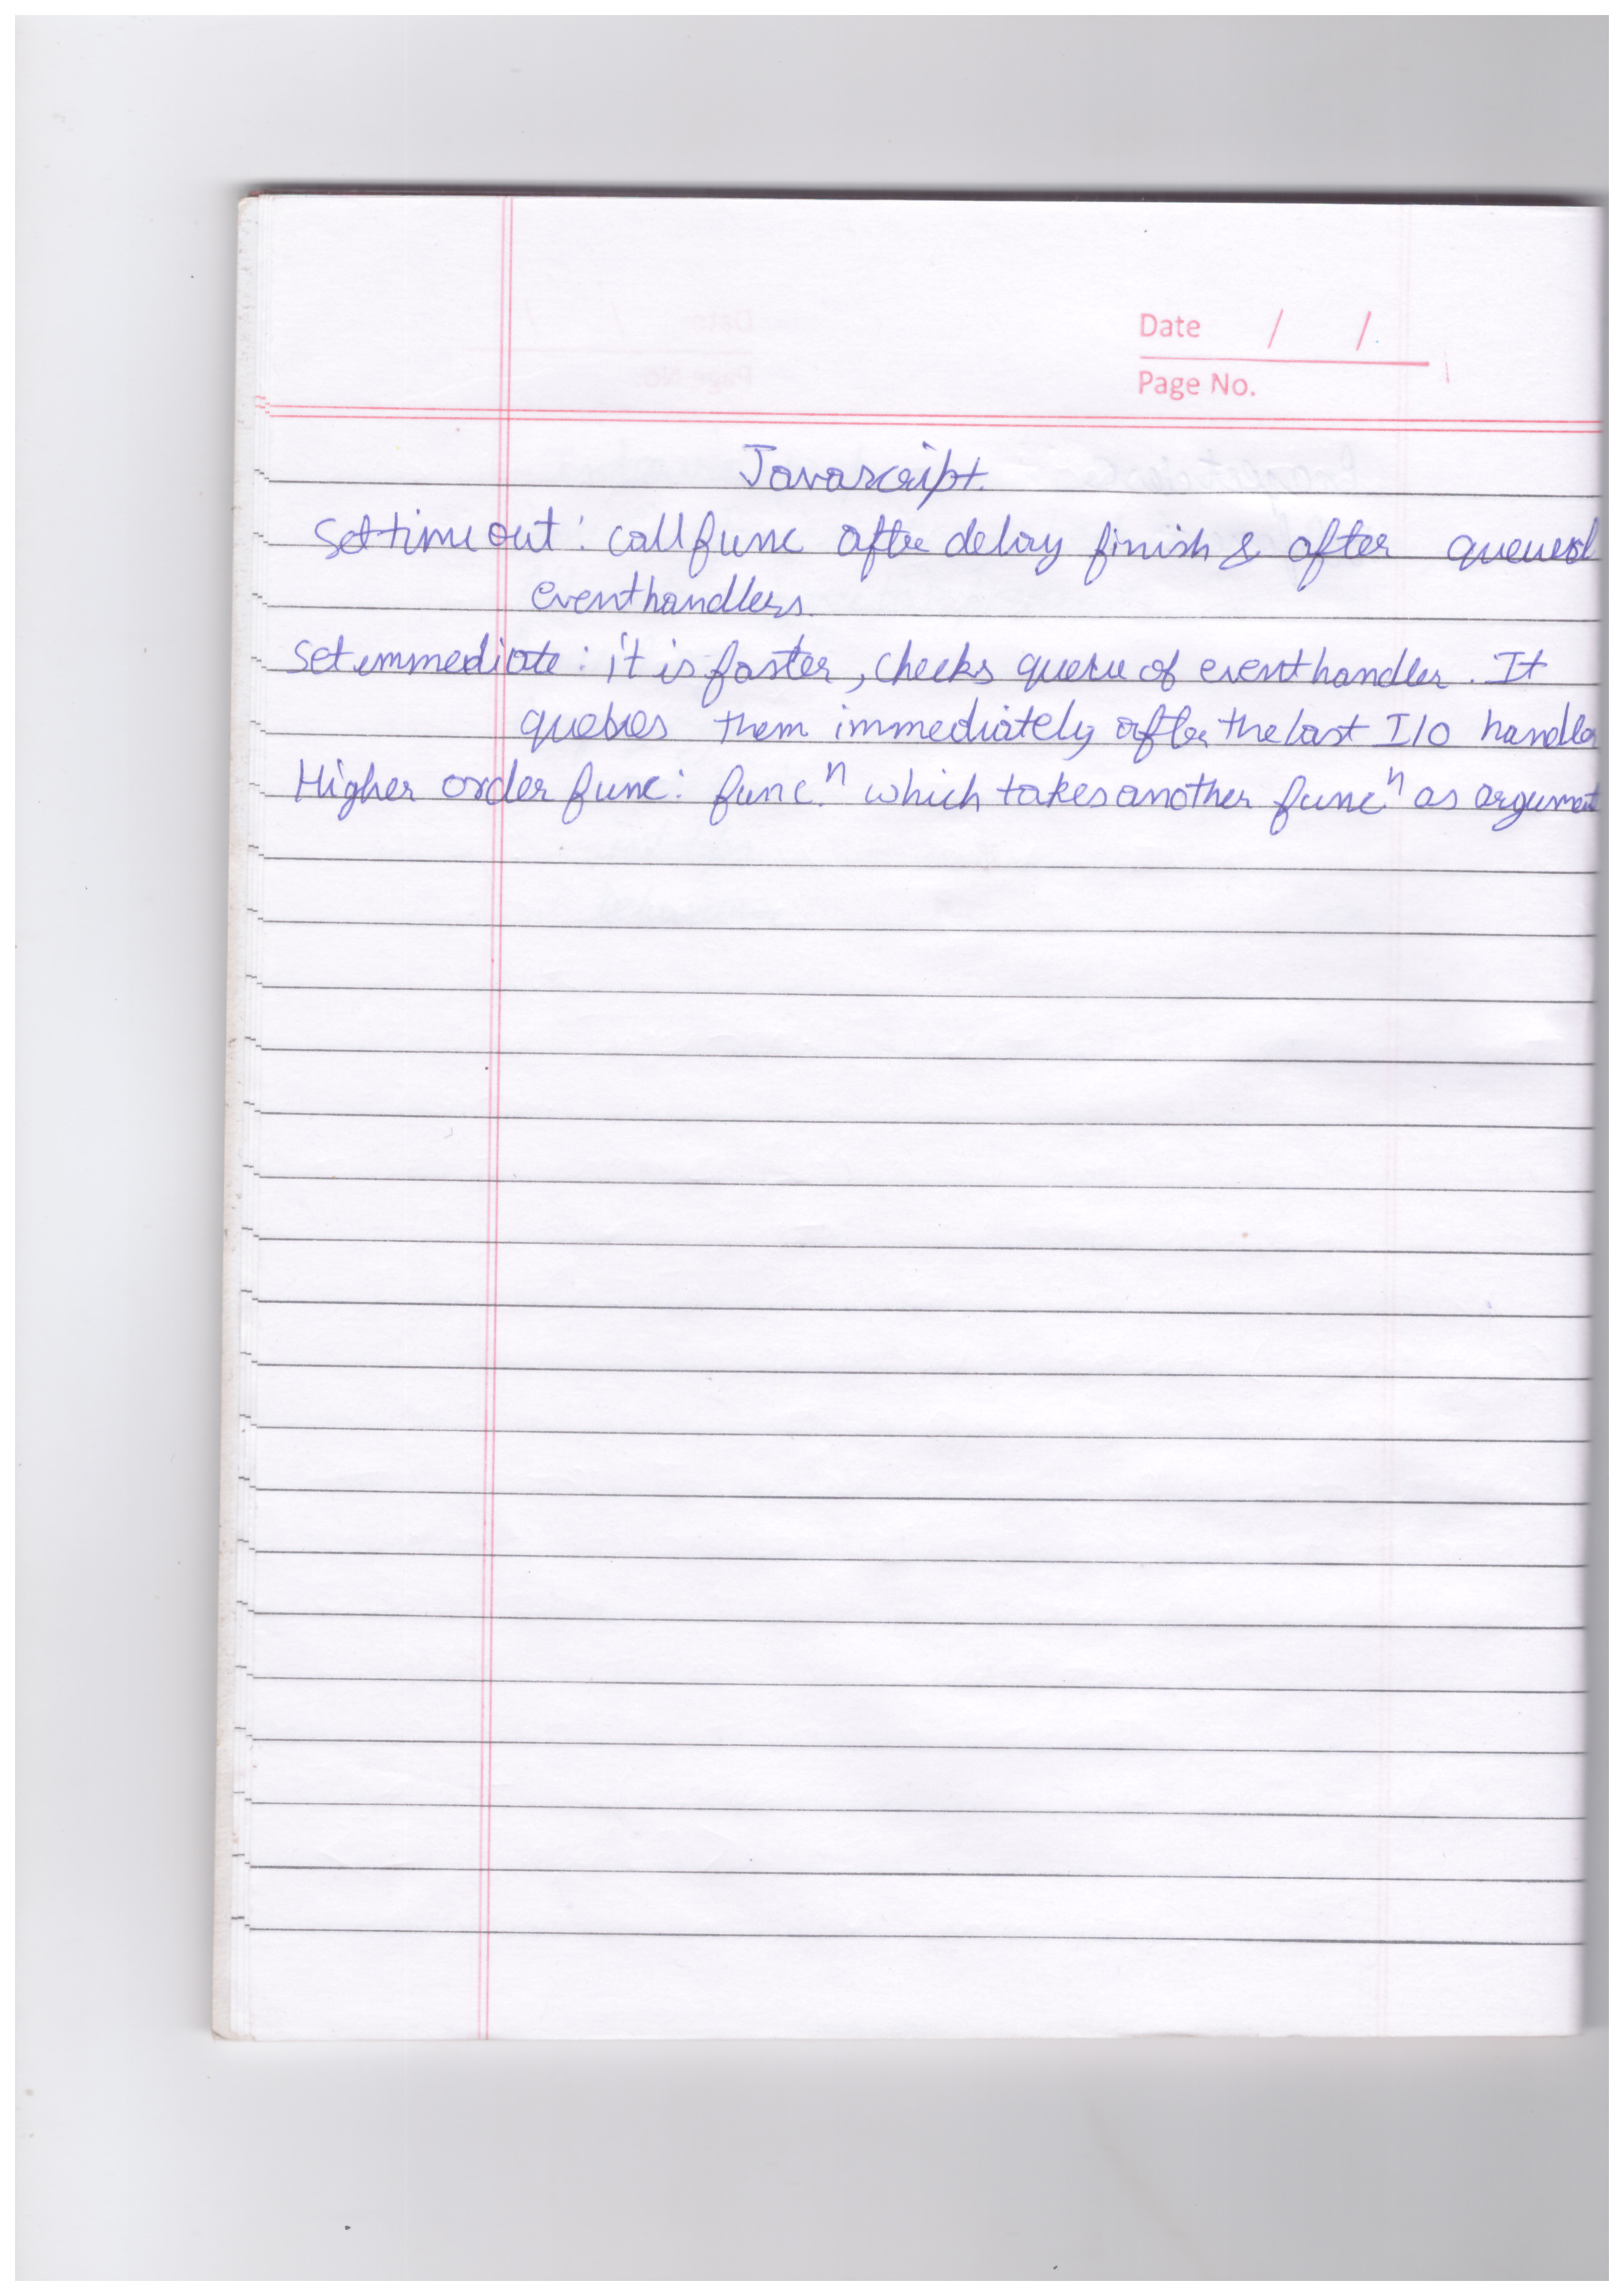 Date / /
Page No.
Javascript.
Settimeout : call func after delay finish & after queued
eventhandlers.
Setimmediate : it is faster, checks queue of eventhandler. It
queues them immediately after the last I/O handler
Higher order func: func.ⁿ which takes another funcⁿ as argument